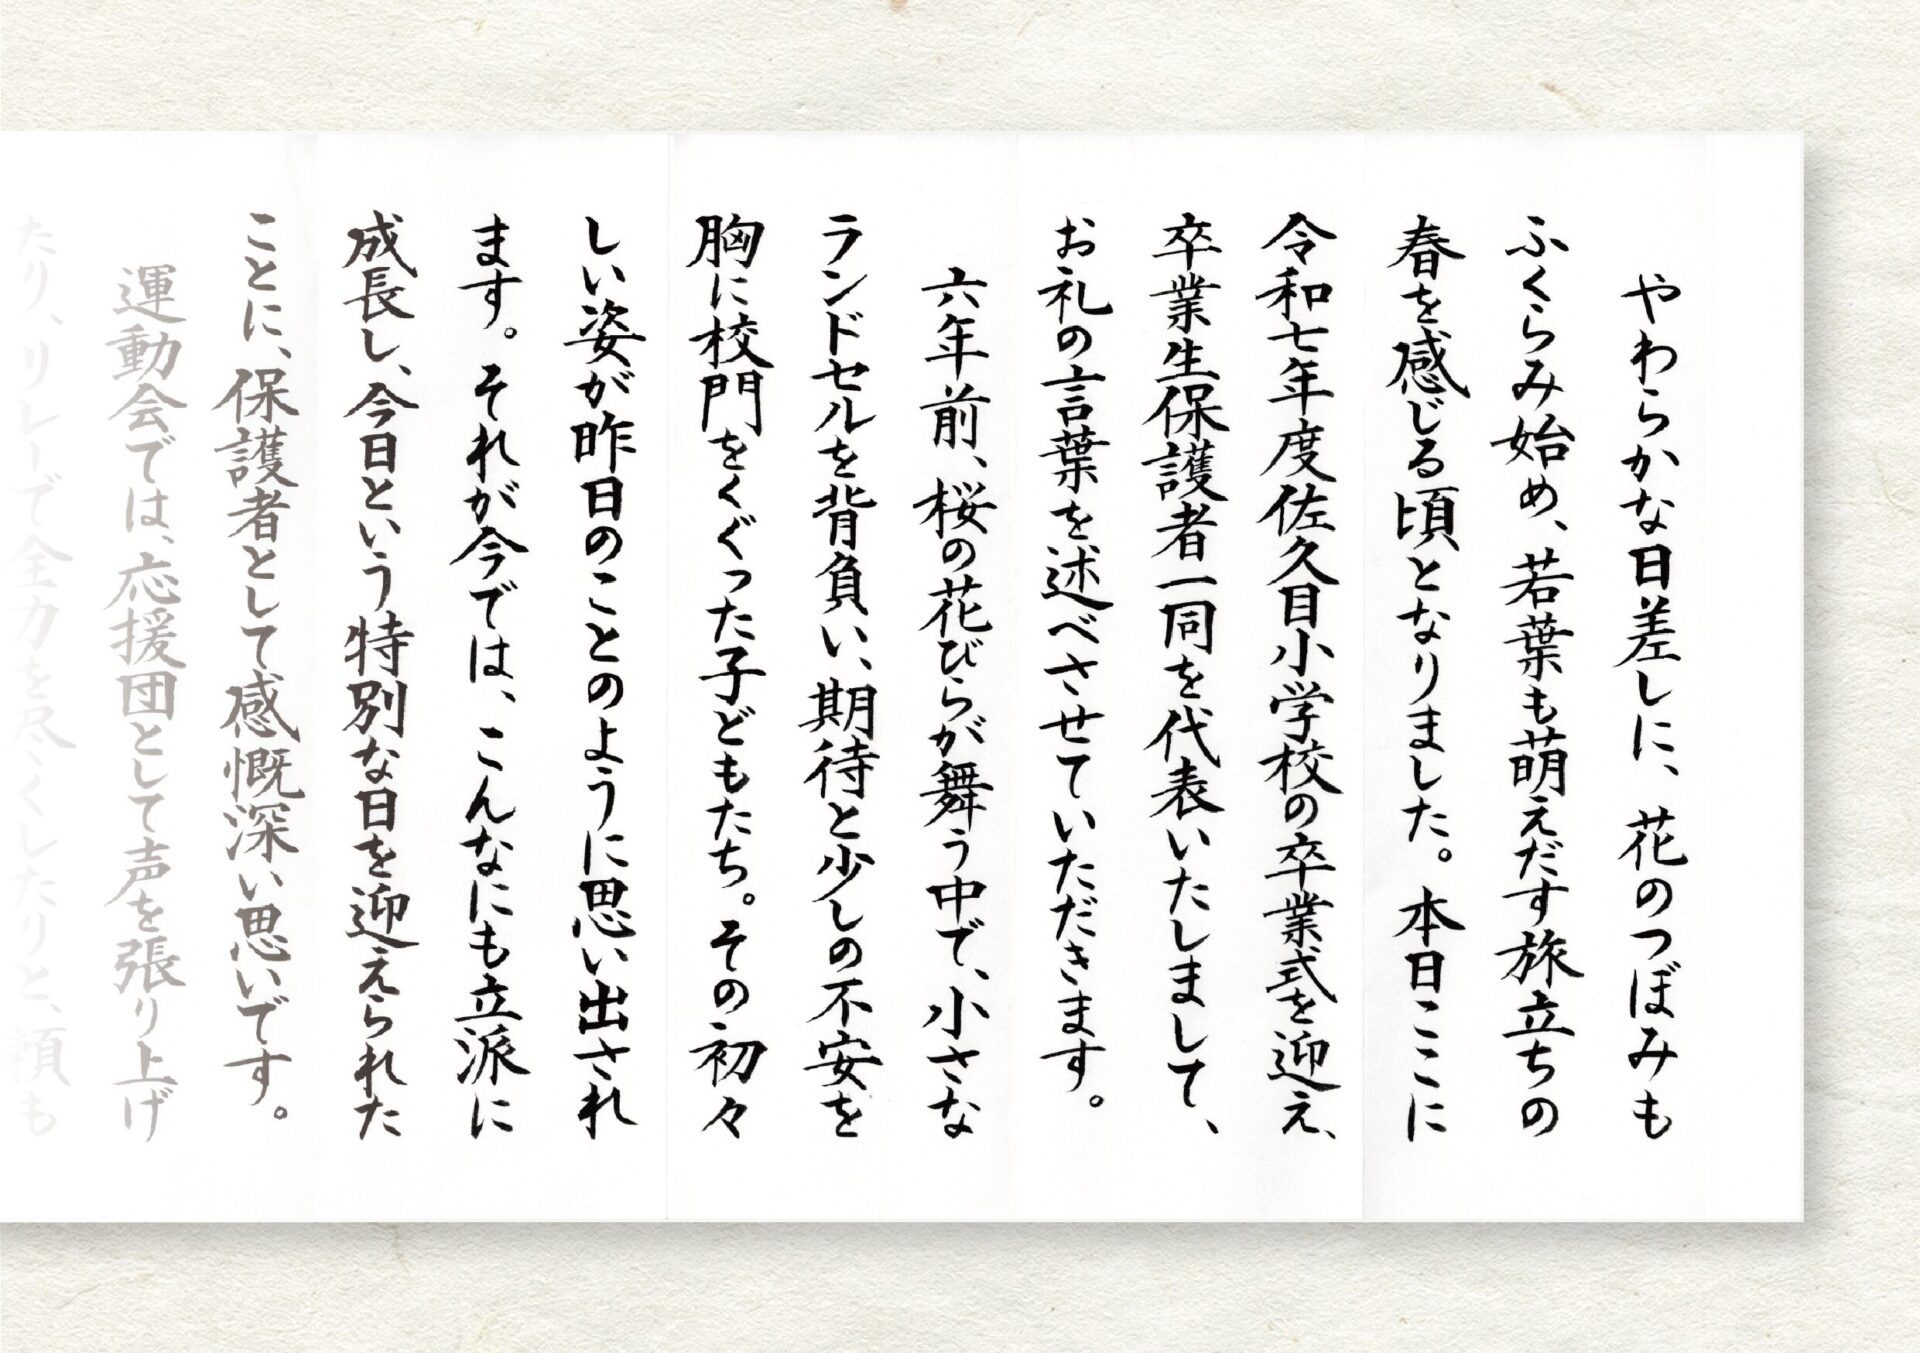 やわらかな日差しに、花のつぼみも
ふくらみ始め、若葉も萌えだす旅立ちの
春を感じる頃となりました。本日ここに
令和七年度佐久目小学校の卒業式を迎え、
卒業生保護者一同を代表いたしまして、
お礼の言葉を述べさせていただきます。
六年前、桜の花びらが舞う中で、小さな
ランドセルを背負い、期待と少しの不安を
胸に校門をくぐった子どもたち。その初々
しい姿が昨日のことのように思い出され
ます。それが今では、こんなにも立派に
成長し、今日という特別な日を迎えられた
ことに、保護者として感慨深い思いです。
運動会では、応援団として声を張り上げ
たり、リレーで全力を尽くしたりと、頼も